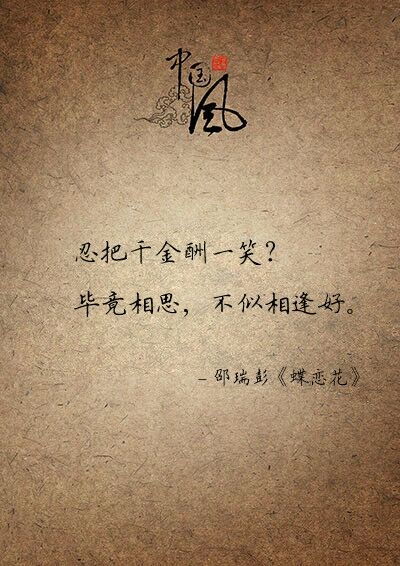 中国风
忍把千金酬一笑？
毕竟相思，不似相逢好。
–邵瑞彭《蝶恋花》